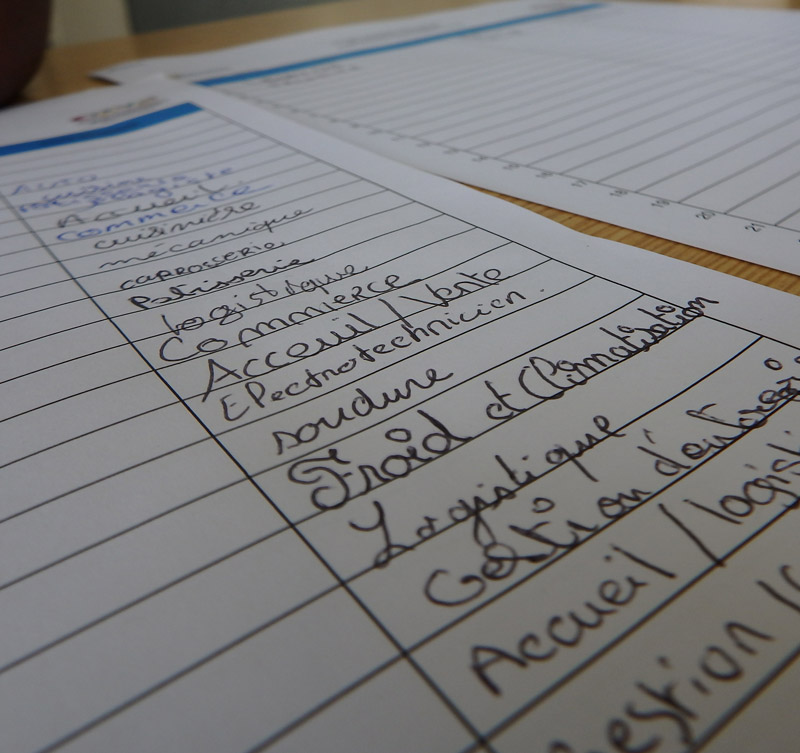 Accueil
commerce
cuisinière
mécanique
carrosserie
Patisserie
logistique
Commmerce
Acceuil / Vente
Electrotechnicien.
soudure
Froid et Climatisation
Logistique
Gestion
Accueil /
17
18
19
20
21